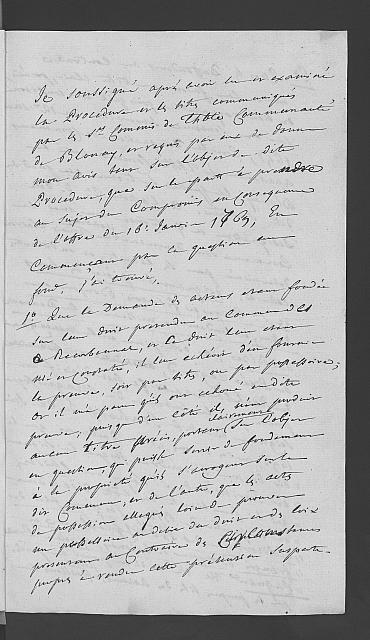 Je soussigné après avoir lu et examiné
la Procédure et les titres communiqués
par les Srs Commis de l'hble Communauté
de Blonay, et requis par eux de donner
mon avis tant sur l'objet de dite
Procédure, que sur le parti à prendre
au sujet du Compromis en Consequence
de l'offre du 18e Janvier 1769, En
Commencant par la question au
fond, j'ai trouvé.
1o Que la Demande des acteurs etant fondée
sur leur droit pretendu au Commun des
et ce droit leur etant
nié et contesté, il leur echéoit d'en fournir
la preuve, soit par titre, ou par possessoire;
or il me parait qu'ils ont echoué en dite
preuve; puisque d'un côté ils n'ont produit
aucun titre précis, portant clairement sur l'objet
en question, qui puisse servir de fondement
à la propriété qu'ils s'arrogent sur le
dit Commun, et de l'autre, que les actes
de possession allegués loin de prouver
un possessoire au desir du droit et des loix
presentent au Contraire des Circonstances
propres à rendre cette pretension suspecte